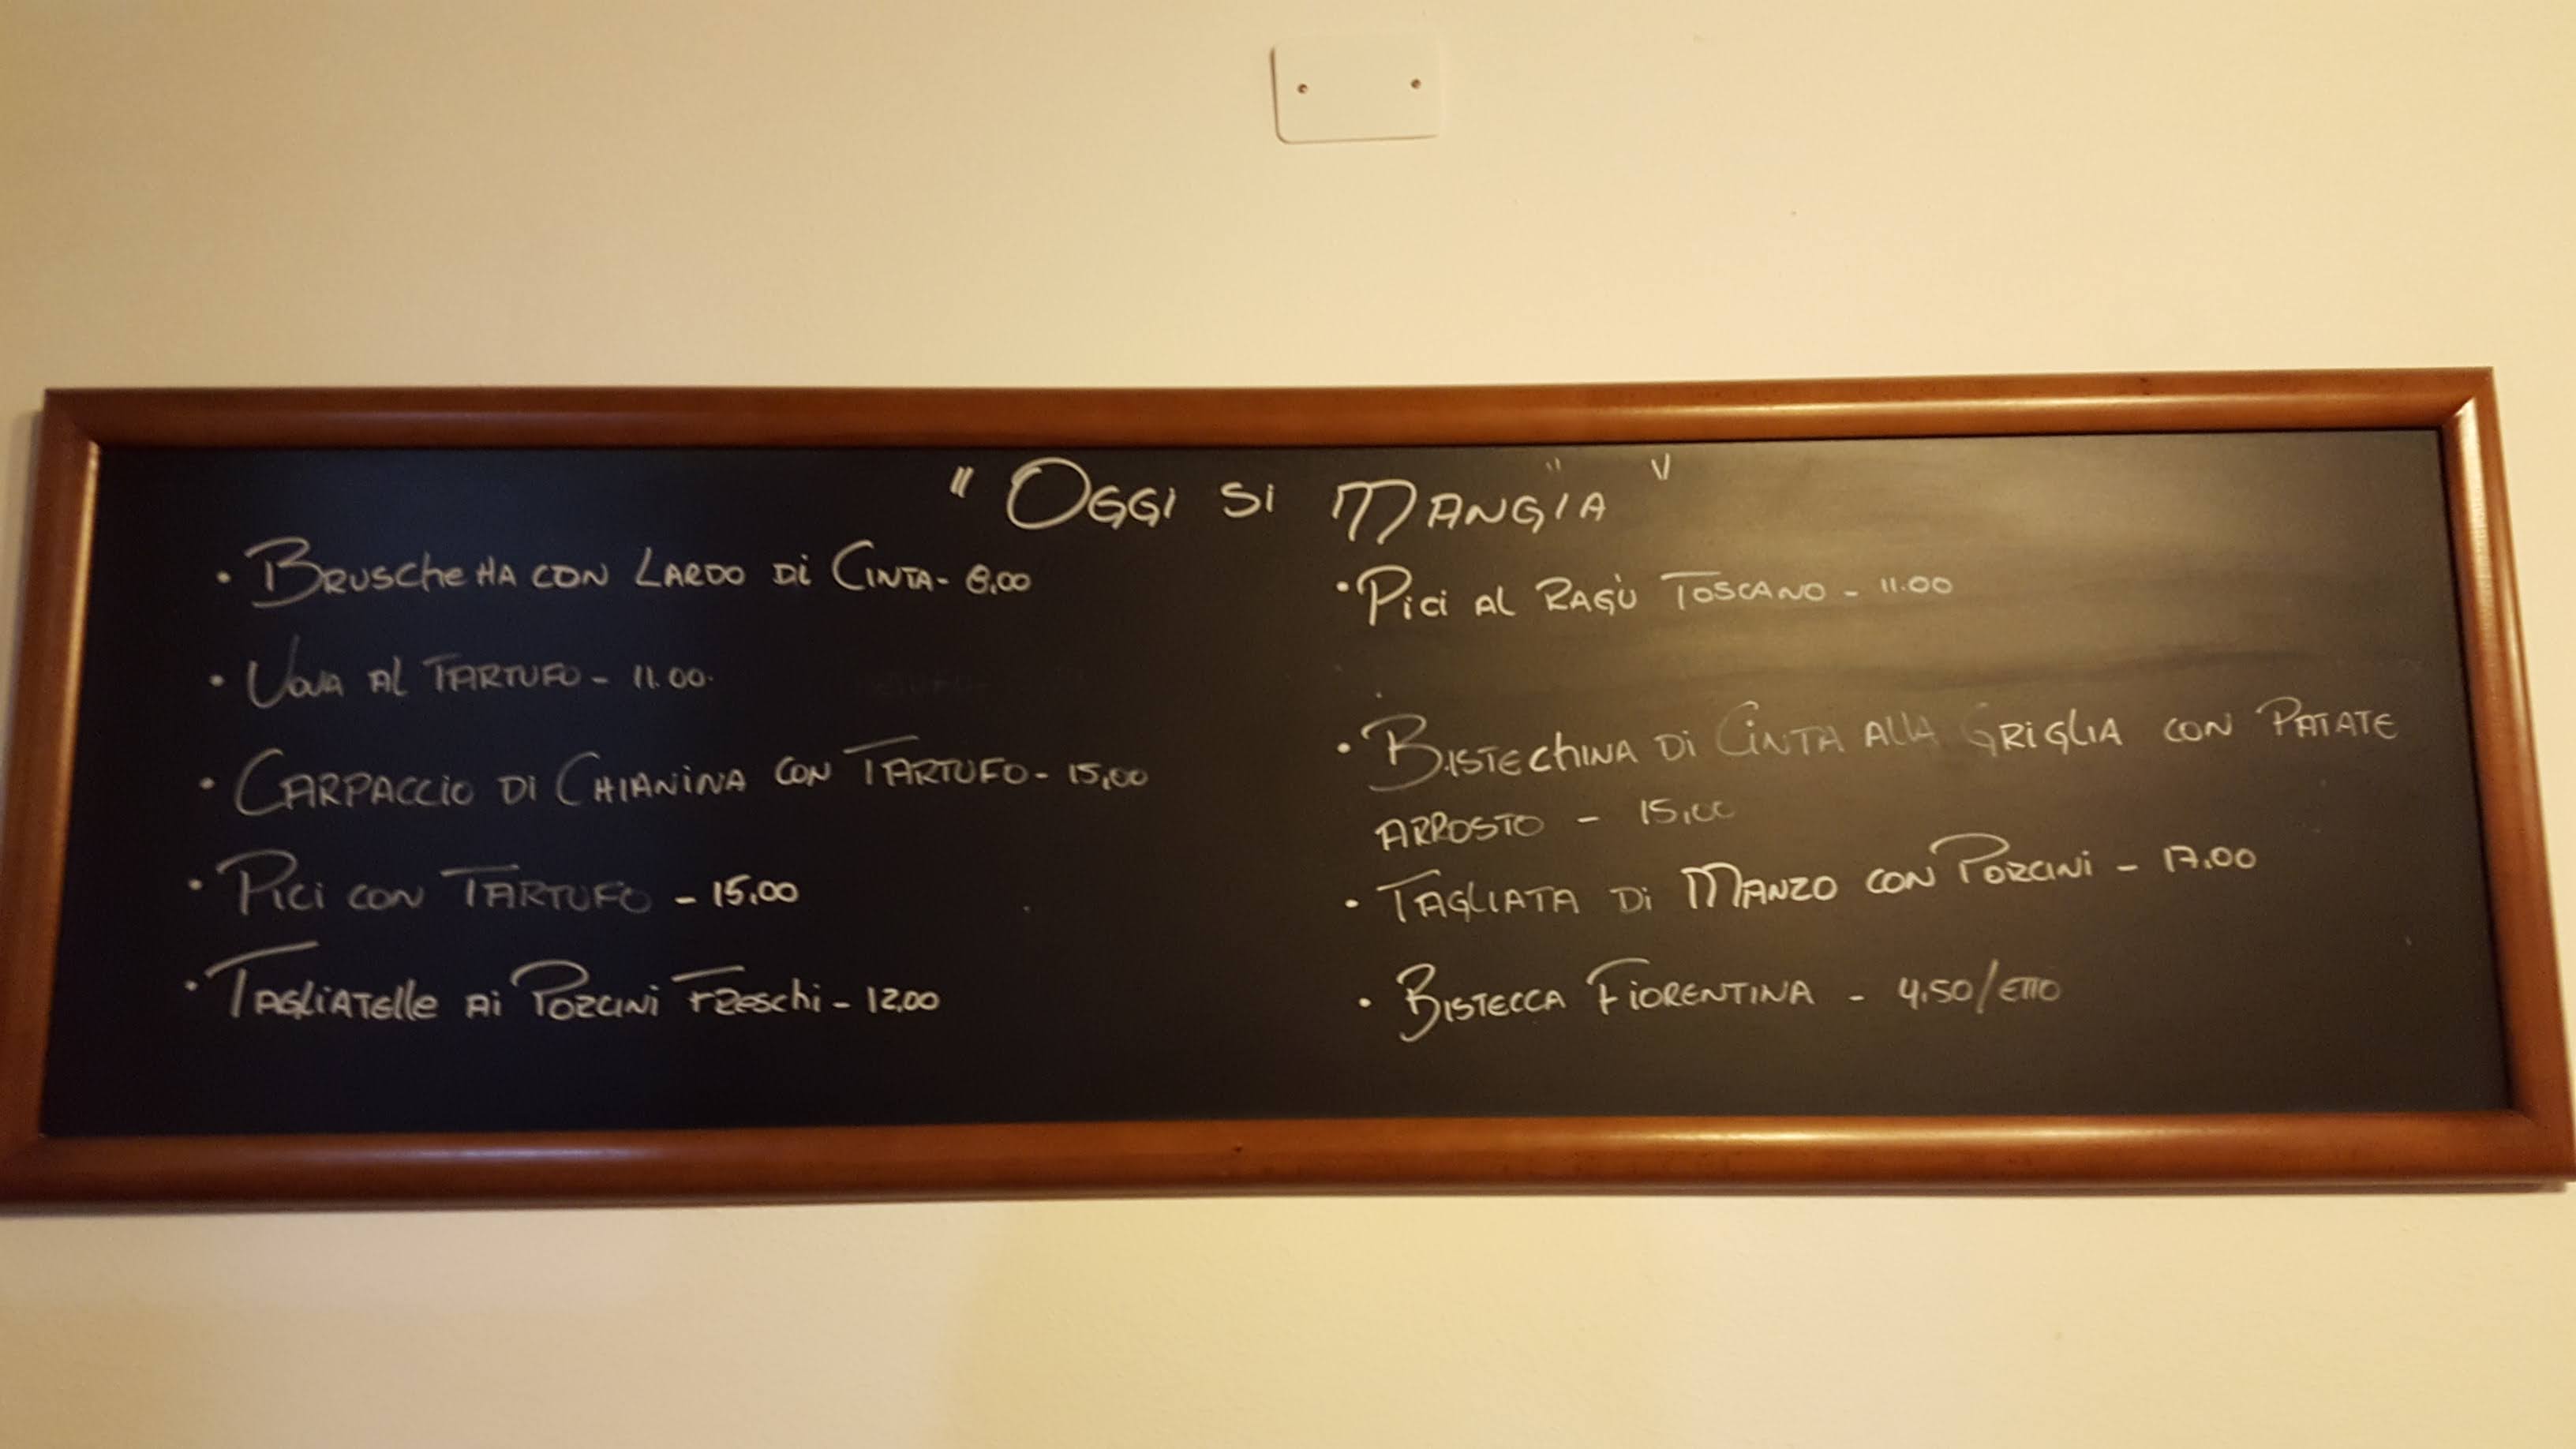 "Oggi si Mangia"
• Bruschetta con Lardo di Cinta - 8,00
• Uova al Tartufo - 11.00
• Carpaccio di Chianina con Tartufo - 15,00
• Pici con Tartufo - 15,00
• Tagliatelle ai Porcini Freschi - 12,00
• Pici al Ragù Toscano - 11.00
• Bistechina di Cinta alla Griglia con Patate
arrosto - 15,00
• Tagliata di Manzo con Porcini - 17.00
• Bistecca Fiorentina - 4,50/etto